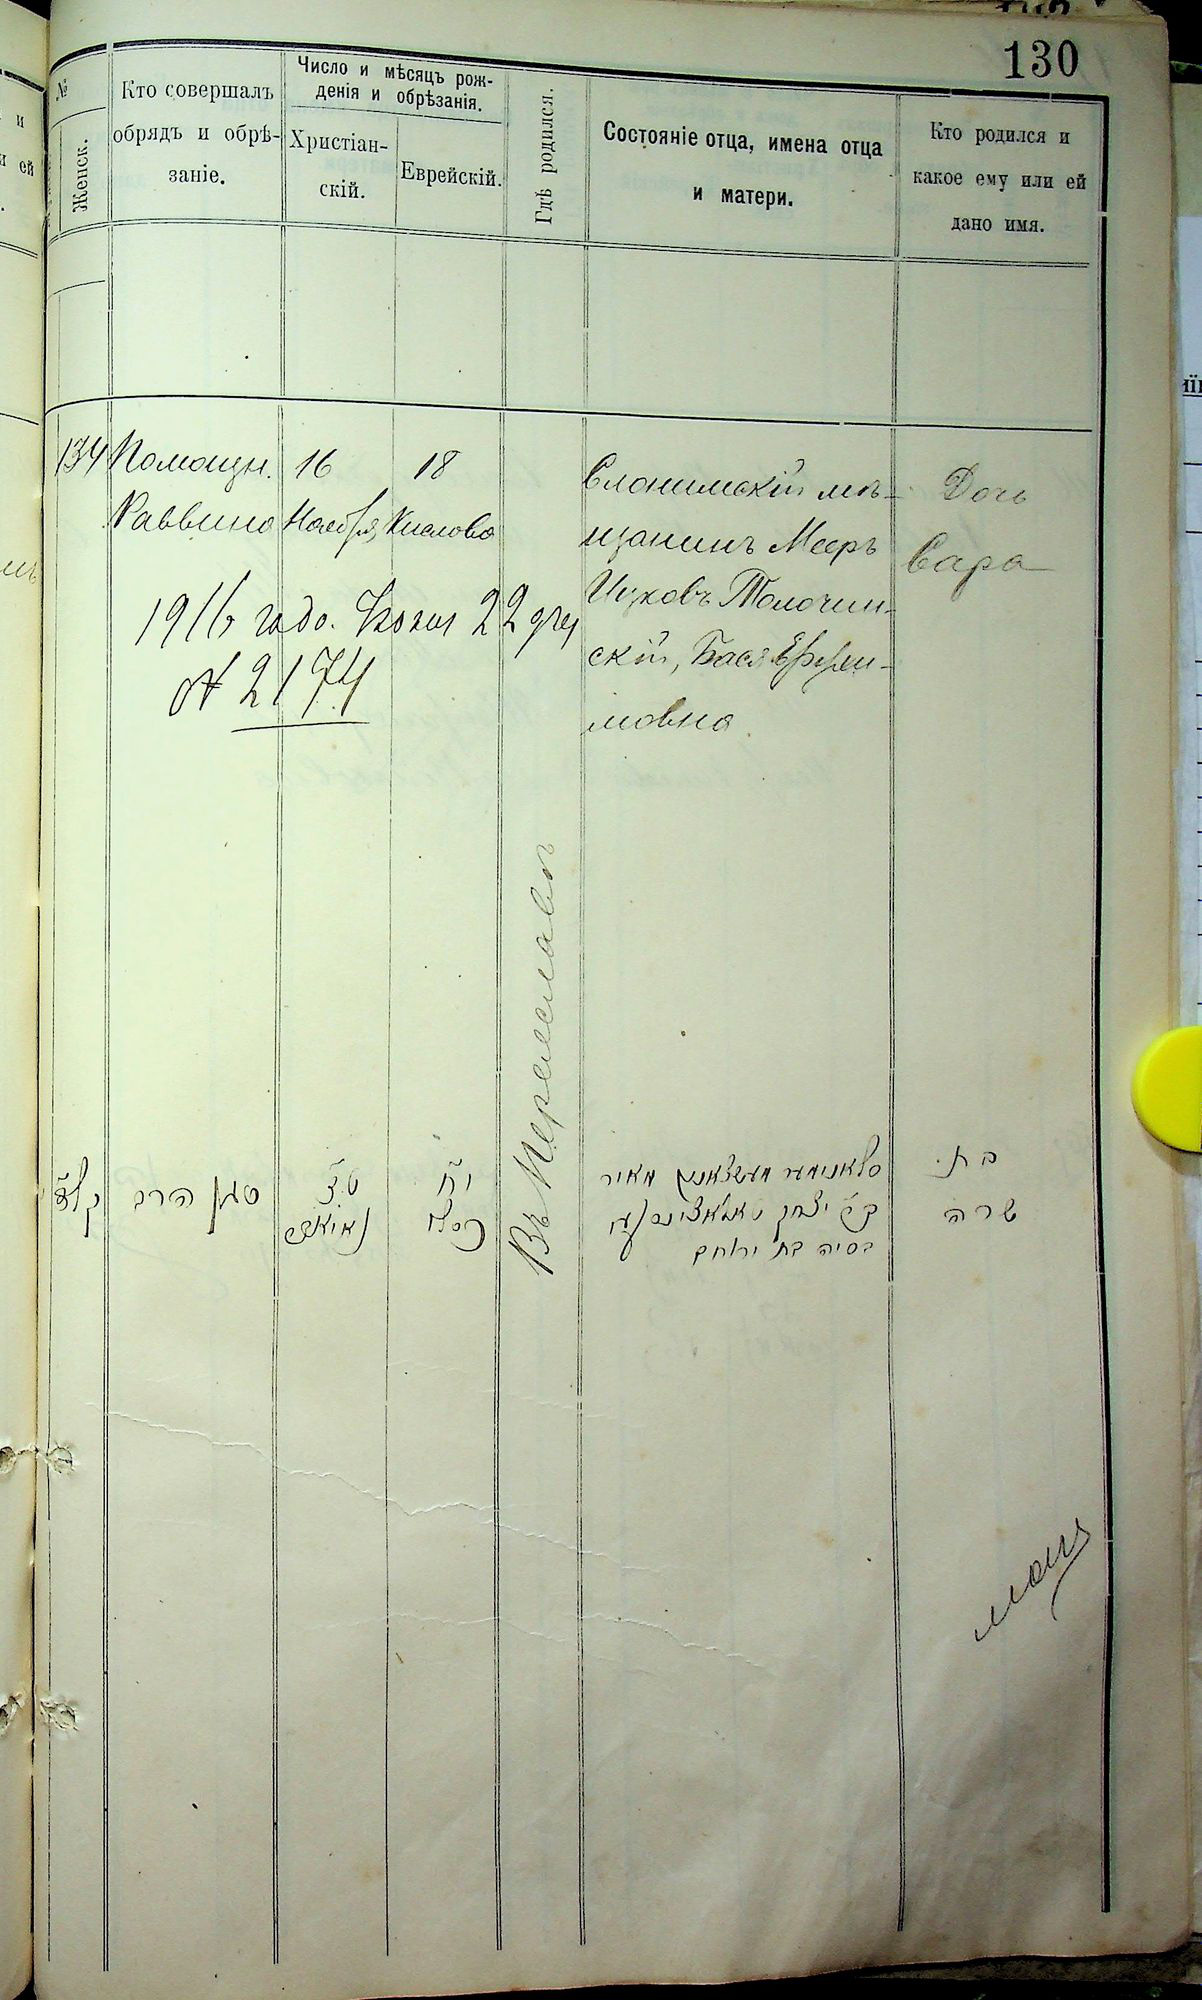 130
№
Женск.
Кто совершалъ
обрядъ и обрѣ-
заніе.
Число и мѣсяцъ рож-
денія и обрѣзанія.
Христіан-
скій.
Еврейскій.
Гдѣ родился.
Состояніе отца, имена отца
и матери.
Кто родился и
какое ему или ей
дано имя.
134
Помощн.
Раввина
16
Ноября
18
Кислова
Въ Переяславѣ
Слонимскій мѣ-
щанинъ Мееръ
Ицковъ Толочин-
скій, Бася
мовна
Дочь
Сара
1916 года. Копія 22 дек
№ 2174
קל״ד
הרב
ט״ז
י״ח
כסלו
מאיר
יצחק
בסיה בת
בת
שרה